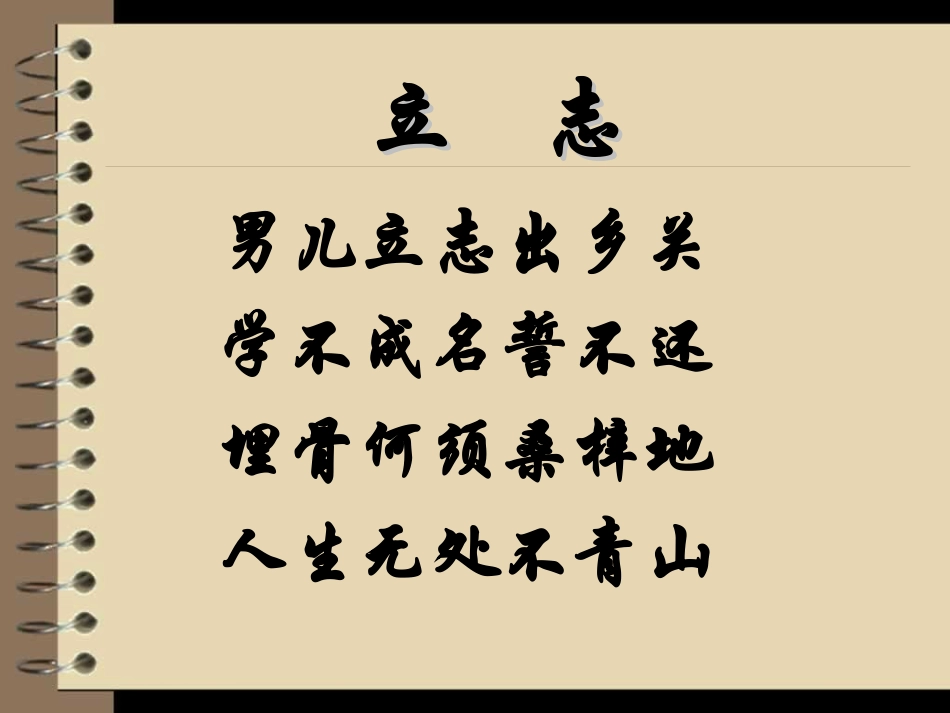 立 志
男儿立志出乡关
学不成名誓不还
埋骨何须桑梓地
人生无处不青山